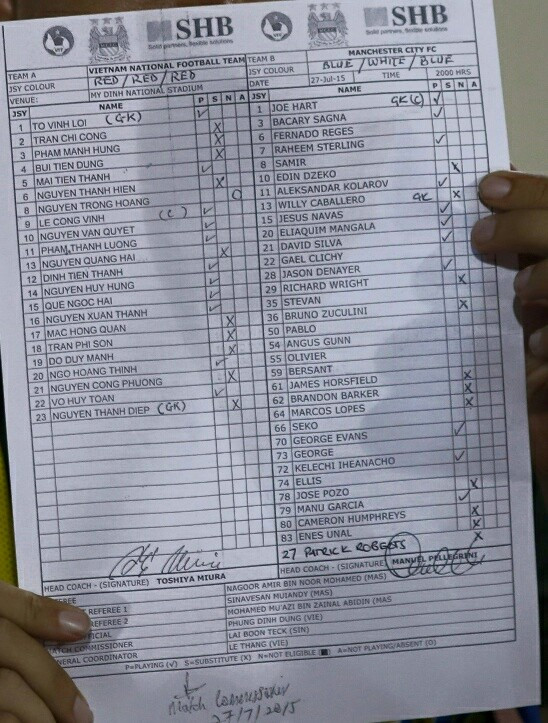 SHB
Solid partners, flexible solutions
SHB
Solid partners, flexible solutions
TEAM A VIETNAM NATIONAL FOOTBALL TEAM
JSY COLOUR RED/RED/RED
VENUE: MY DINH NATIONAL STADIUM
JSY NAME P S N A
1 TO VINH LOI (GK) √
2 TRAN CHI CONG X
3 PHAM MANH HUNG X
4 BUI TIEN DUNG X
5 MAI TIEN THANH √
6 NGUYEN THANH HIEN X
8 NGUYEN TRONG HOANG O
9 LE CONG VINH (C) √
10 NGUYEN VAN QUYET √
11 PHAM THANH LUONG √
13 NGUYEN QUANG HAI X
12 DINH TIEN THANH √
14 NGUYEN HUY HUNG √
15 QUE NGOC HAI √
16 NGUYEN XUAN THANH √
17 MAC HONG QUAN X
18 TRAN PHI SON X
19 DO DUY MANH X
20 NGO HOANG THINH √
21 NGUYEN CONG PHUONG X
22 VO HUY TOAN √
23 NGUYEN THANH DIEP (GK) X
HEAD COACH - (SIGNATURE) TOSHIYA MIURA
TEAM B MANCHESTER CITY FC
JSY COLOUR BLUE/WHITE/BLUE
DATE 27-Jul-15 TIME 2000 HRS
JSY NAME P S N A
1 JOE HART GK(C) √
3 BACARY SAGNA √
6 FERNADO REGES
7 RAHEEM STERLING √
8 SAMIR
10 EDIN DZEKO X
11 ALEKSANDAR KOLAROV √
13 WILLY CABALLERO GK X
15 JESUS NAVAS √
20 ELIAQUIM MANGALA √
21 DAVID SILVA √
22 GAEL CLICHY
28 JASON DENAYER √
29 RICHARD WRIGHT X
35 STEVAN
36 BRUNO ZUCULINI X
50 PABLO
54 ANGUS GUNN
55 OLIVIER
59 BERSANT
61 JAMES HORSFIELD X
62 BRANDON BARKER X
64 MARCOS LOPES X
66 SEKO
70 GEORGE EVANS √
73 GEORGE
72 KELECHI IHEANACHO √
74 ELLIS
78 JOSE POZO X
79 MANU GARCIA √
80 CAMERON HUMPHREYS X
83 ENES UNAL X
27 PATRICK ROBERTS X
HEAD COACH - (SIGNATURE) MANUEL PELLEGRINI
NAGOOR AMIR BIN NOOR MOHAMED (MAS)
REFEREE 1 SINAVESAN MUIANDY (MAS)
REFEREE 2 MOHAMED MU'AZI BIN ZAINAL ABIDIN (MAS
PHUNG DINH DUNG (VIE)
COMMISSIONER LAI BOON TECK (SIN)
COORDINATOR LE THANG (VIE)
P=PLAYING (√) S=SUBSTITUTE (X) N=NOT ELIGIBLE A=NOT PLAYING/ABSENT (O)
Match Commissioner
27/7/2015